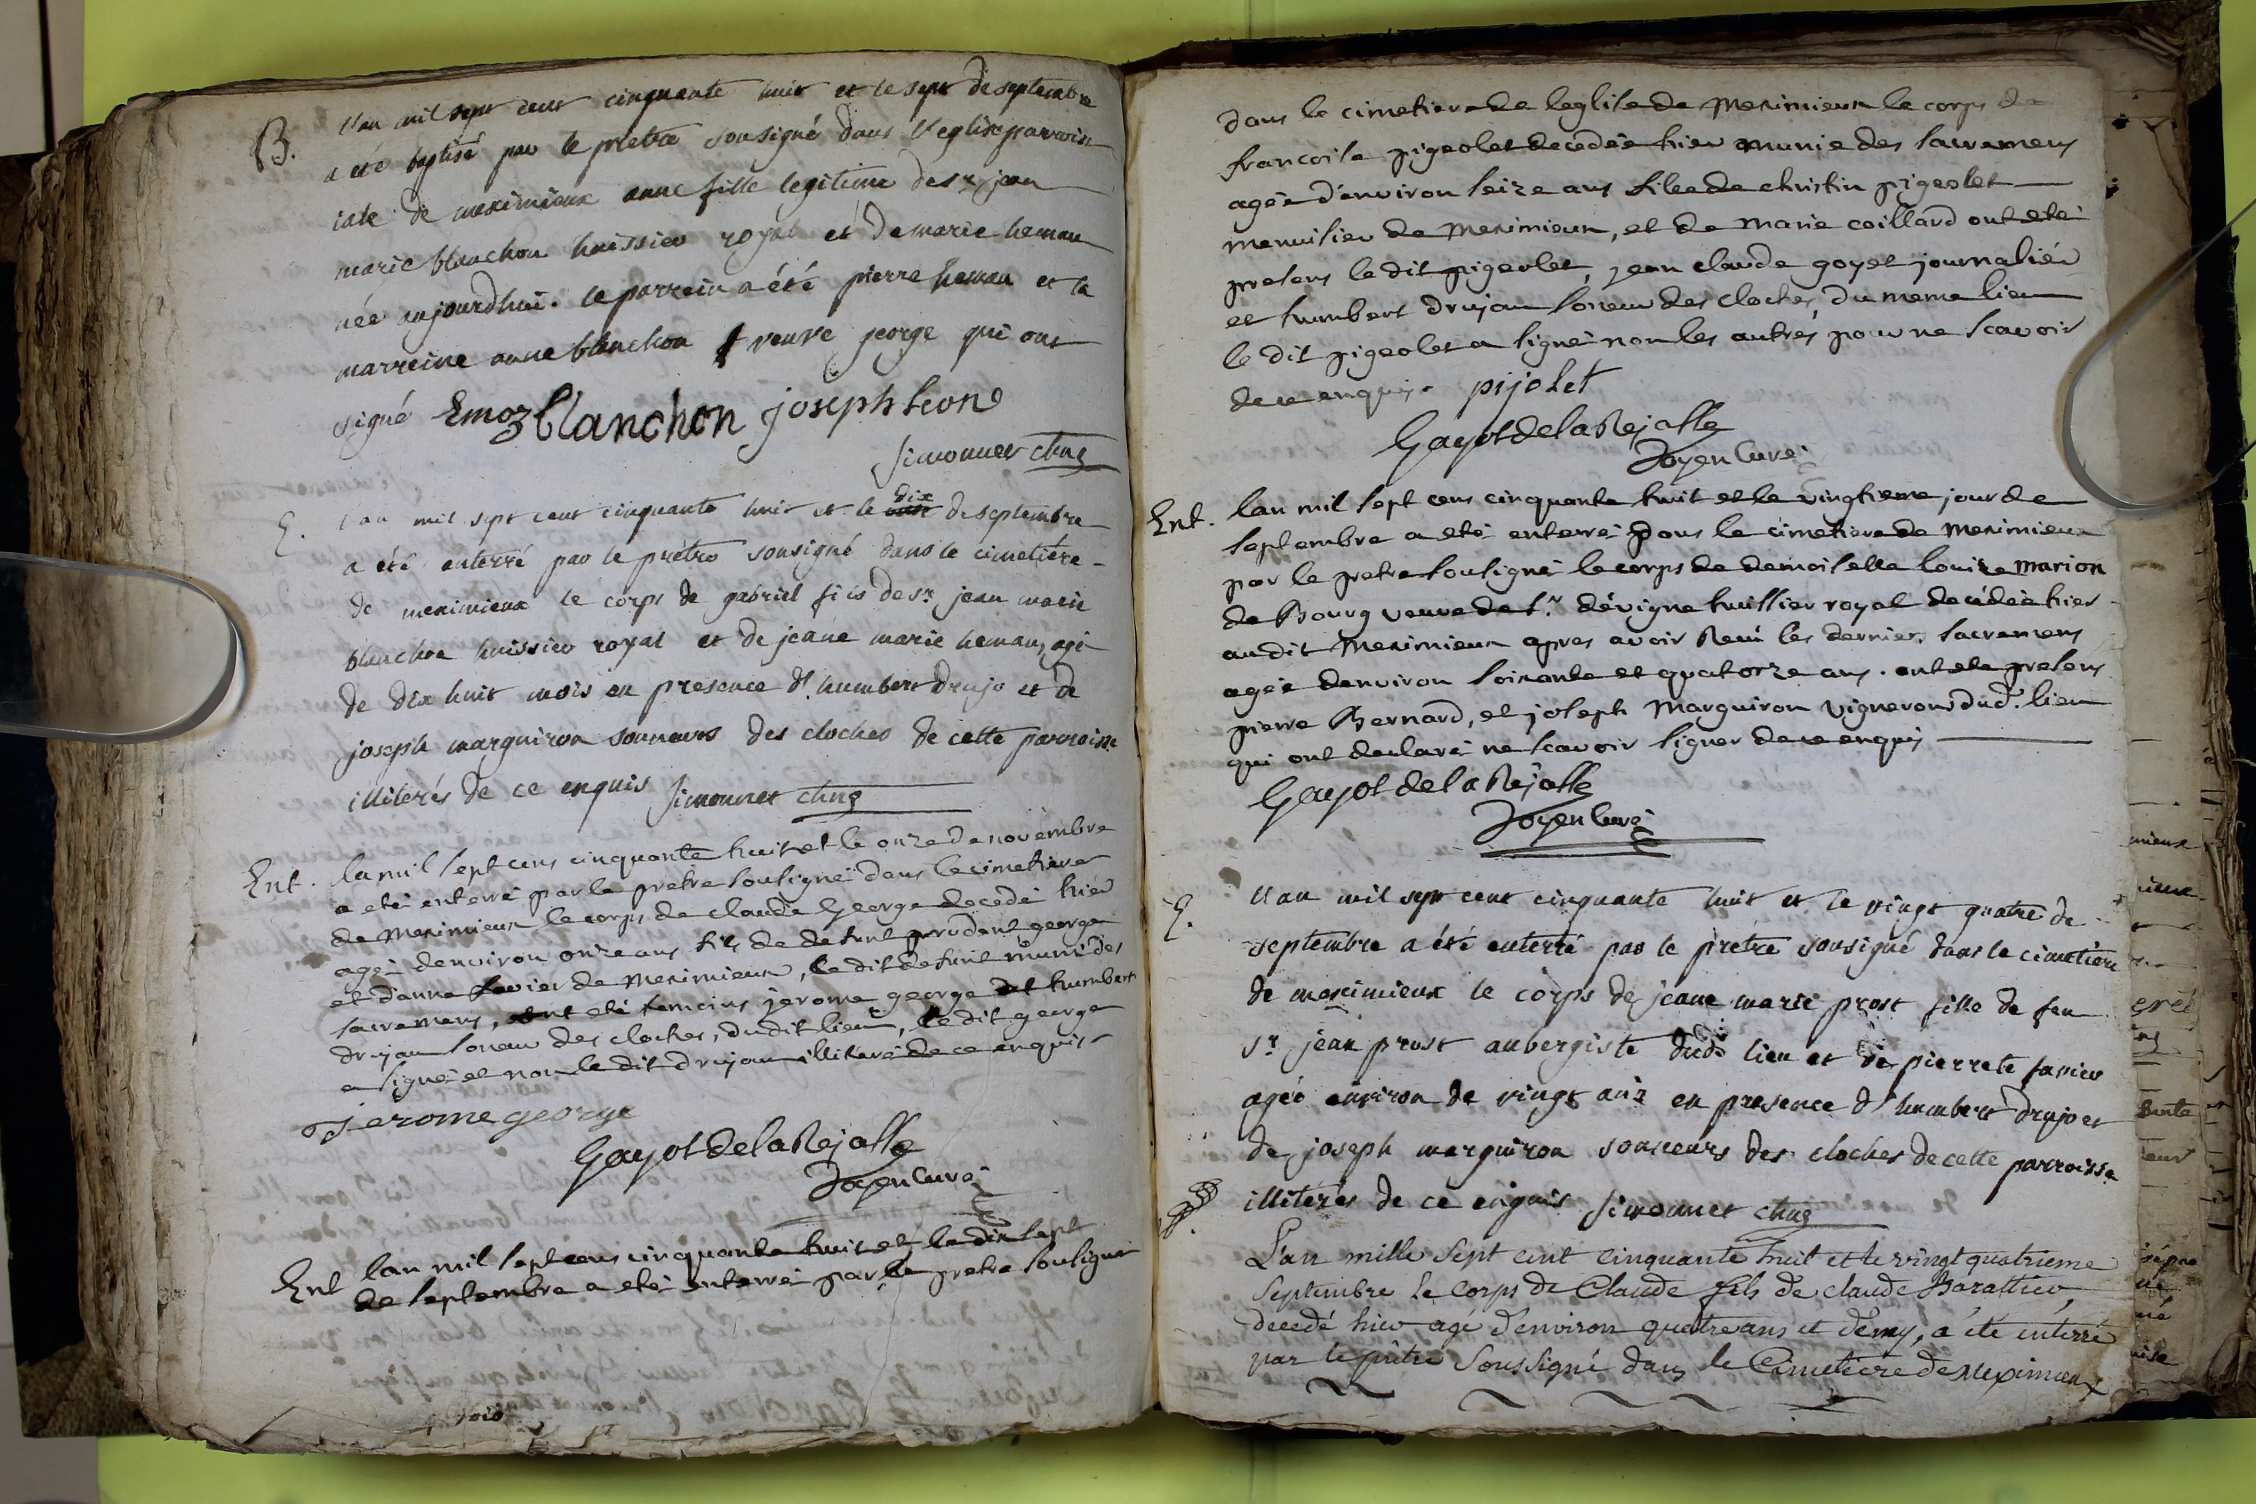 B. l'an mil sept cent cinquante huit et le sept de septembre
a été baptisé par le pretre sousigné dans l'eglise parrois
iale de meximieux anne fille legitime de sr jean
marie blanchon huissier royal et de marie heman
née aujourdhui. le parrein a été pierre heman et la
marreine anne blanchon veuve george qui ont
signé Emoz blanchon joseph leon
simonnet
E. l'an mil sept cent cinquante huit et le dix de septembre
a été enterré par le prètre sousigné dans le cimetière
de meximieux le corps de gabriel fils de sr. jean marie
blanchon huissier royal et de jeane marie heman, agé
de dix huit mois en presence d'humbert drujo et de
joseph marguiron sonneurs des cloches de cette parroisse
illiterés de ce enquis simonnet
Ent. lan mil sept cens cinquante huit et le onze de novembre
a eté enterré par le pretre sousigné dans le cimetiere
de Meximieux le corps de claude George decedé hier
agé denviron onze ans fils de defunt prudent george
et danne de Meximieux, le dit defunt muni des
sacremens, ont eté temoins jerome george et humbert
drujau soneur des cloches, dudit lieu, le dit george
a signé et non le dit drujau illiteré de ce enquis
Jerome george
Gayot de la Rejasse
Doyen Curé
Ent lan mil sept cens cinquante huit et le dix sept
de septembre a eté enterré par le pretre sousigné
dans le cimetiere de leglise de Meximieux le corps de
francoise pigeolet decedée hier munie des sacremens
agée d'environ seize ans fille de christin pigeolet
menuisier de Meximieux, et de marie coillard ont eté
presens le dit pigeolet, jean claude goyet journalier
et humbert drujau soneur des cloches du meme lieu
le dit pigeolet a signé non les autres pour ne scavoir
de ce enquis. pijolet
Gayot de la Rejasse
Doyen Curé
Ent. lan mil sept cens cinquante huit et le vingtieme jour de
septembre a eté enterré dans le cimetiere de Meximieux
par le pretre sousigné le corps de demoiselle louize marion
de Bourg veuve de sr. dévigne huissier royal decedée hier
audit Meximieux apres avoir Recu les derniers sacremens
agée denviron soixante et quatorze ans. ont eté presens
pierre Bernard, et joseph Marguiron vigneron dud. lieu
qui ont declaré ne scavoir signer de ce enquis
Gayot de la Rejasse
Doyen Curé
E. l'an mil sept cent cinquante huit et le vingt quatre de
septembre a été enterré par le prètre sousigné dans le cimetière
de meximieux le corps de jeane marie prost fille de feu
sr. jean prost aubergiste dud. lieu et de pierrete
agée environ de vingt ans en presence d'humbert drujo et
de joseph marguiron sonneurs des cloches de cette parroisse
illiterés de ce enquis simonnet
L'an mille sept cent cinquante huit et le vingt quatrieme
Septembre le Corps de Claude fils de claude
decedé hier agé d'environ quatre ans et demy, a été enterré
par le prêtre soussigné dans le Cimetiere de Meximieux